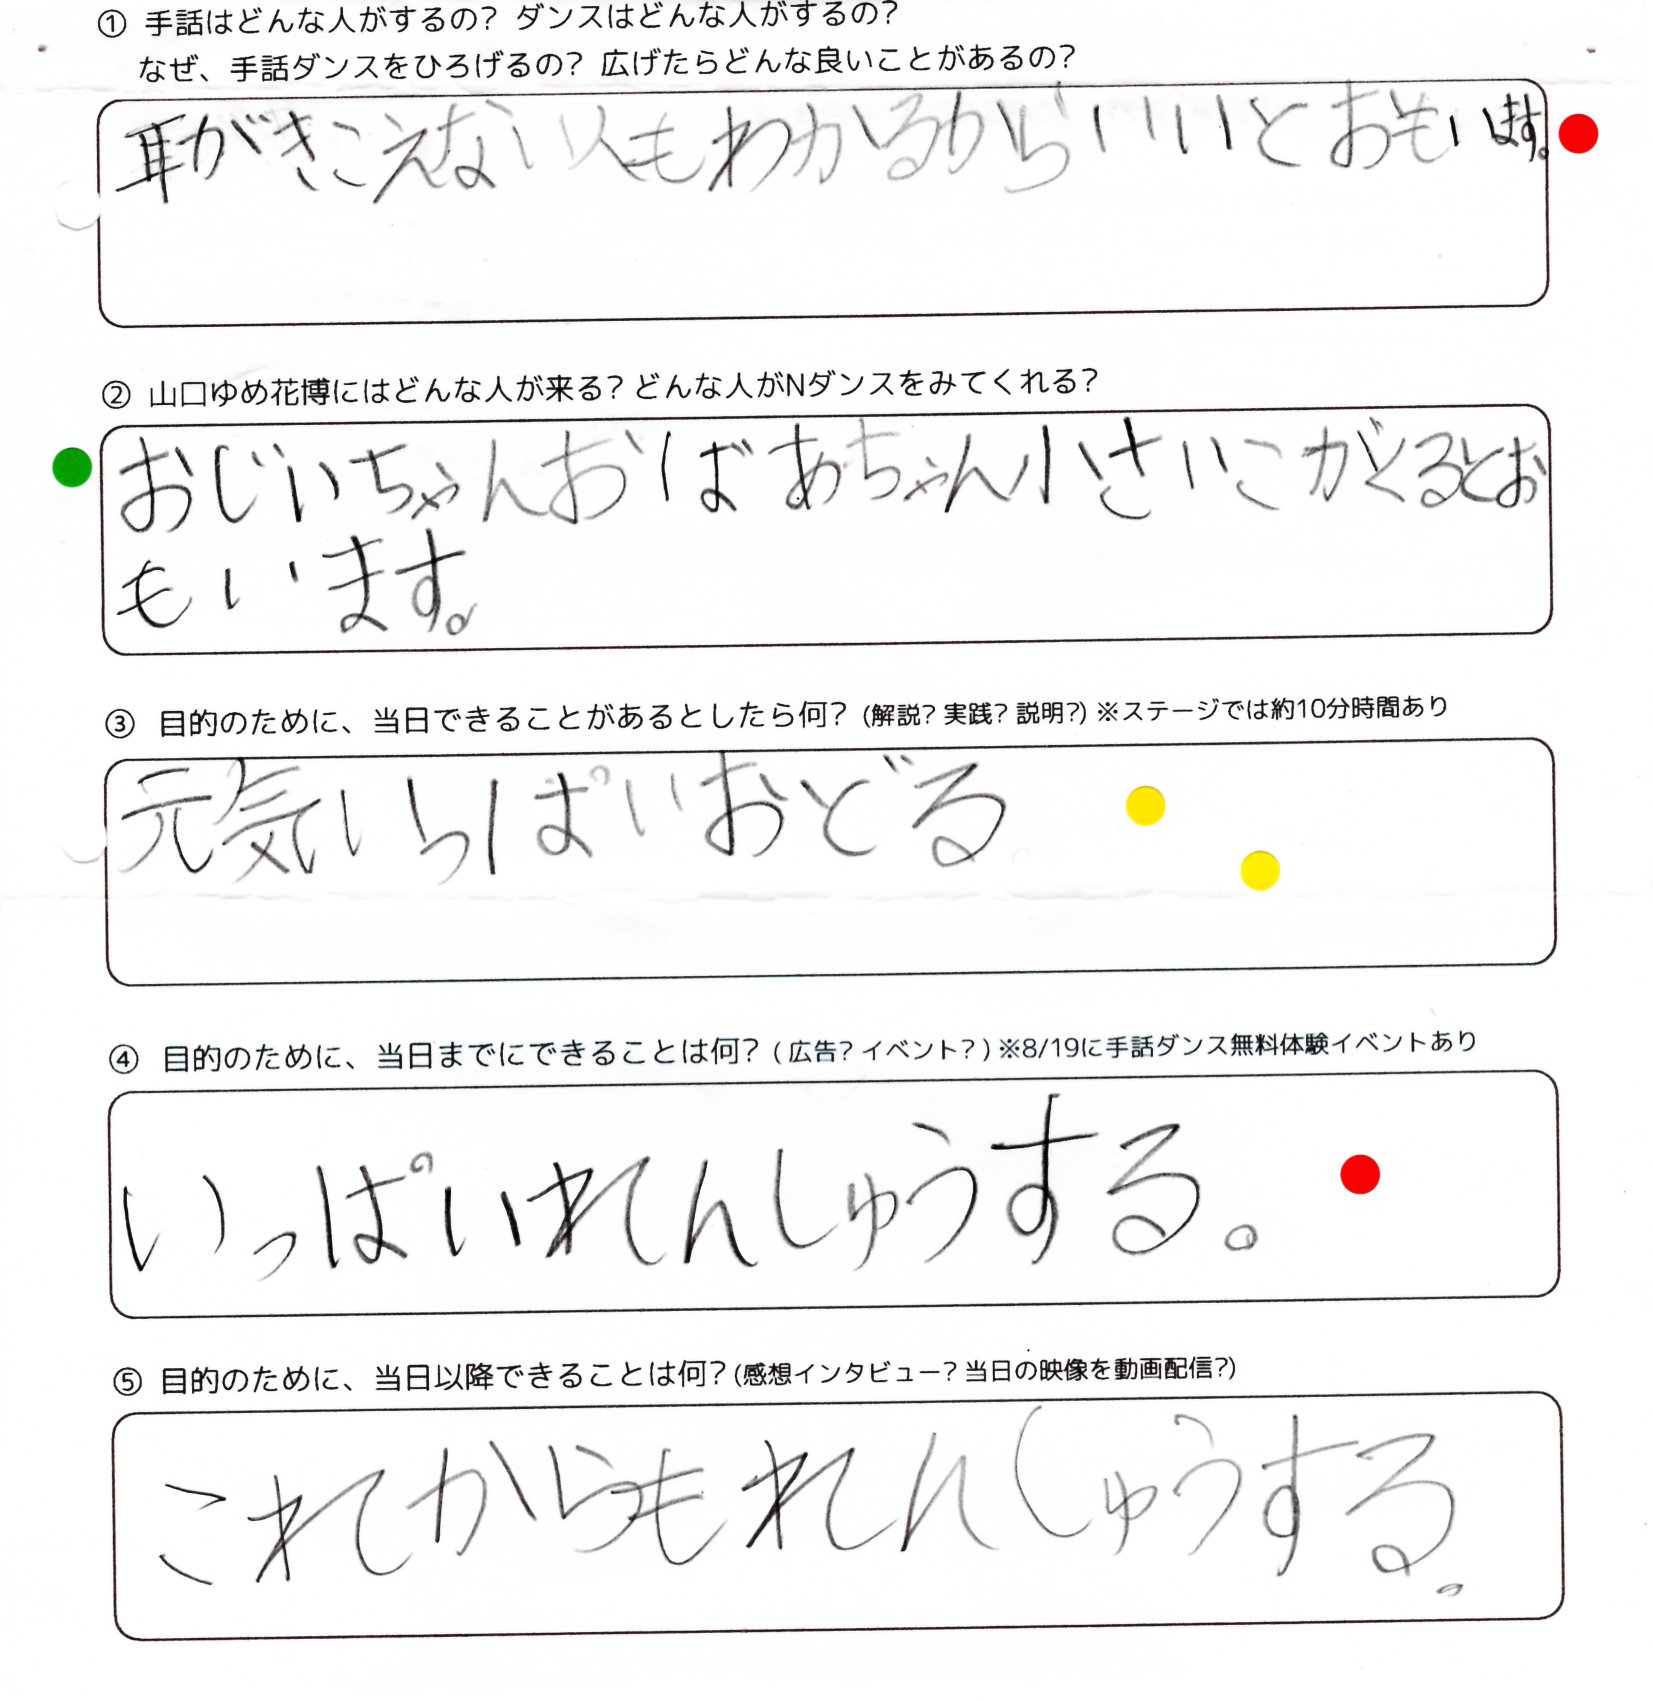 ① 手話はどんな人がするの? ダンスはどんな人がするの?
なぜ、手話ダンスをひろげるの? 広げたらどんな良いことがあるの?
耳がきこえない人もわかるからいいとおもいます。
② 山口ゆめ花博にはどんな人が来る? どんな人がNダンスをみてくれる?
おじいちゃんおばあちゃん小さいこがくるとお
もいます。
③ 目的のために、当日できることがあるとしたら何? (解説? 実践? 説明?) ※ステージでは約10分時間あり
元気いっぱいおどる
④ 目的のために、当日までにできることは何? ( 広告? イベント? ) ※8/19に手話ダンス無料体験イベントあり
いっぱいれんしゅうする。
⑤ 目的のために、当日以降できることは何? (感想インタビュー? 当日の映像を動画配信?)
これからもれんしゅうする。